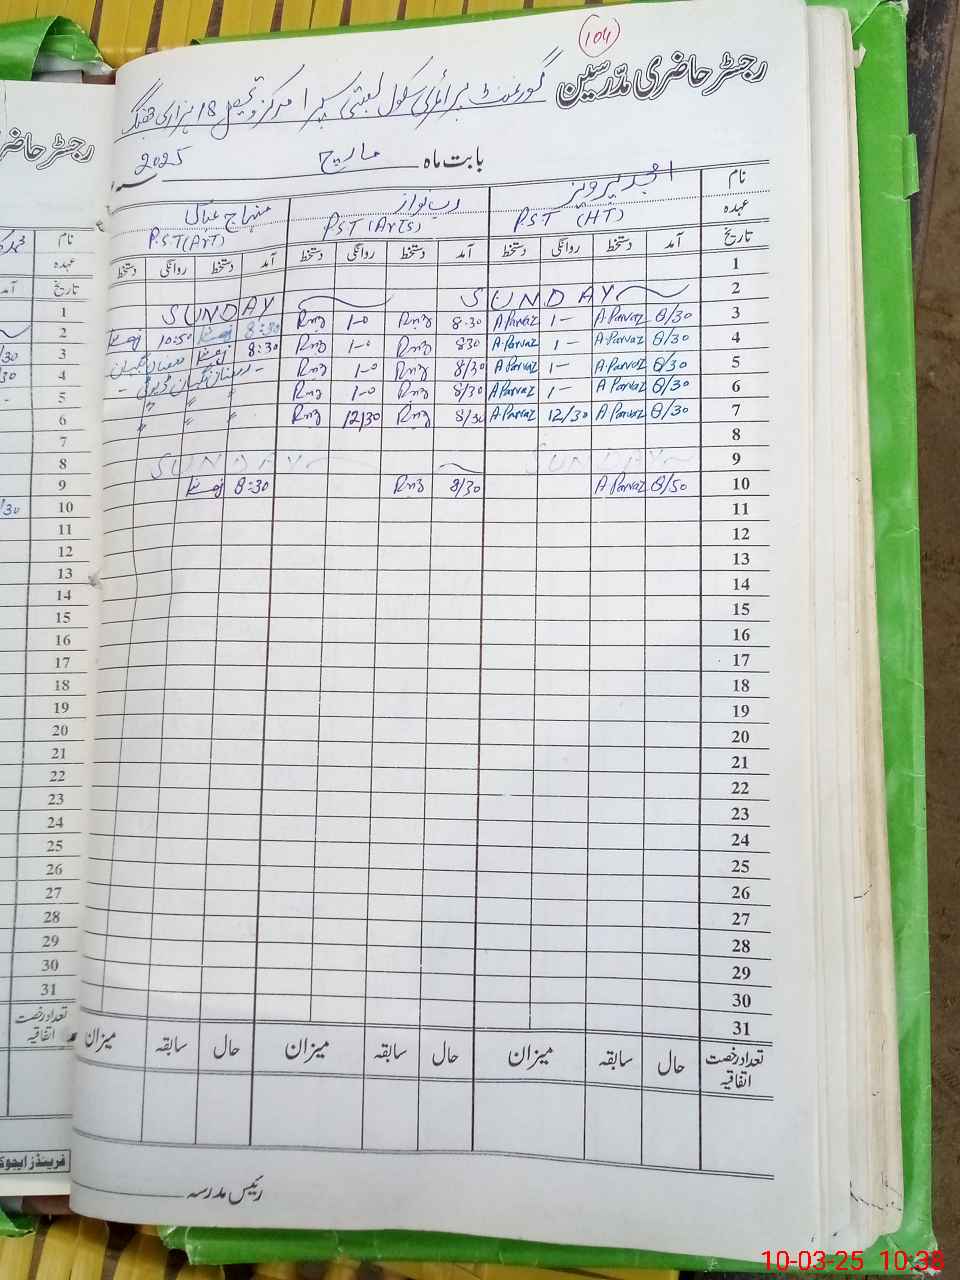 104
رجسٹر حاضری مدرسین
گورنمنٹ پرائمری سکول
بابت ماہ مارچ 2025
نام امجد پرویز رب نواز منہاج عباس
عہدہ P.ST (HT) P.ST (Arts) P.ST (Art)
تاریخ آمد دستخط روانگی دستخط آمد دستخط روانگی دستخط آمد دستخط روانگی دستخط
1
2 SUNDAY SUNDAY
3 8/30 A.Parvaz 1- A.Parvaz 8:30 Rnz 1-0 Rnz 8:30 10:50
4 8/30 A.Parvaz 1- A.Parvaz 830 Rnz 1-0 Rnz 8:30
5 8/30 A.Parvaz 1- A.Parvaz 8/30 Rnz 1-0 Rnz
6 8/30 A.Parvaz 1- A.Parvaz 8/30 Rnz 1-0 Rnz " " "
7 8/30 A Parvaz 12/30 A Parvaz 8/30 Rnz 12/30 Rnz " " "
8
9 SUNDAY SUNDAY
10 8/50 A Parvaz 8/30 Rnz 8:30
11
12
13
14
15
16
17
18
19
20
21
22
23
24
25
26
27
28
29
30
31
تعداد رخصت اتفاقیہ حال سابقہ میزان حال سابقہ میزان حال سابقہ میزان
رئیس مدرسہ
رجسٹر حاضری
نام
عہدہ
تاریخ آمد
1
2
3 /30
4 /30
5
6
7
8
9
10 /30
11
12
13
14
15
16
17
18
19
20
21
22
23
24
25
26
27
28
29
30
31
تعداد رخصت اتفاقیہ
فرینڈز ایجوکی
10-03-25 10:38